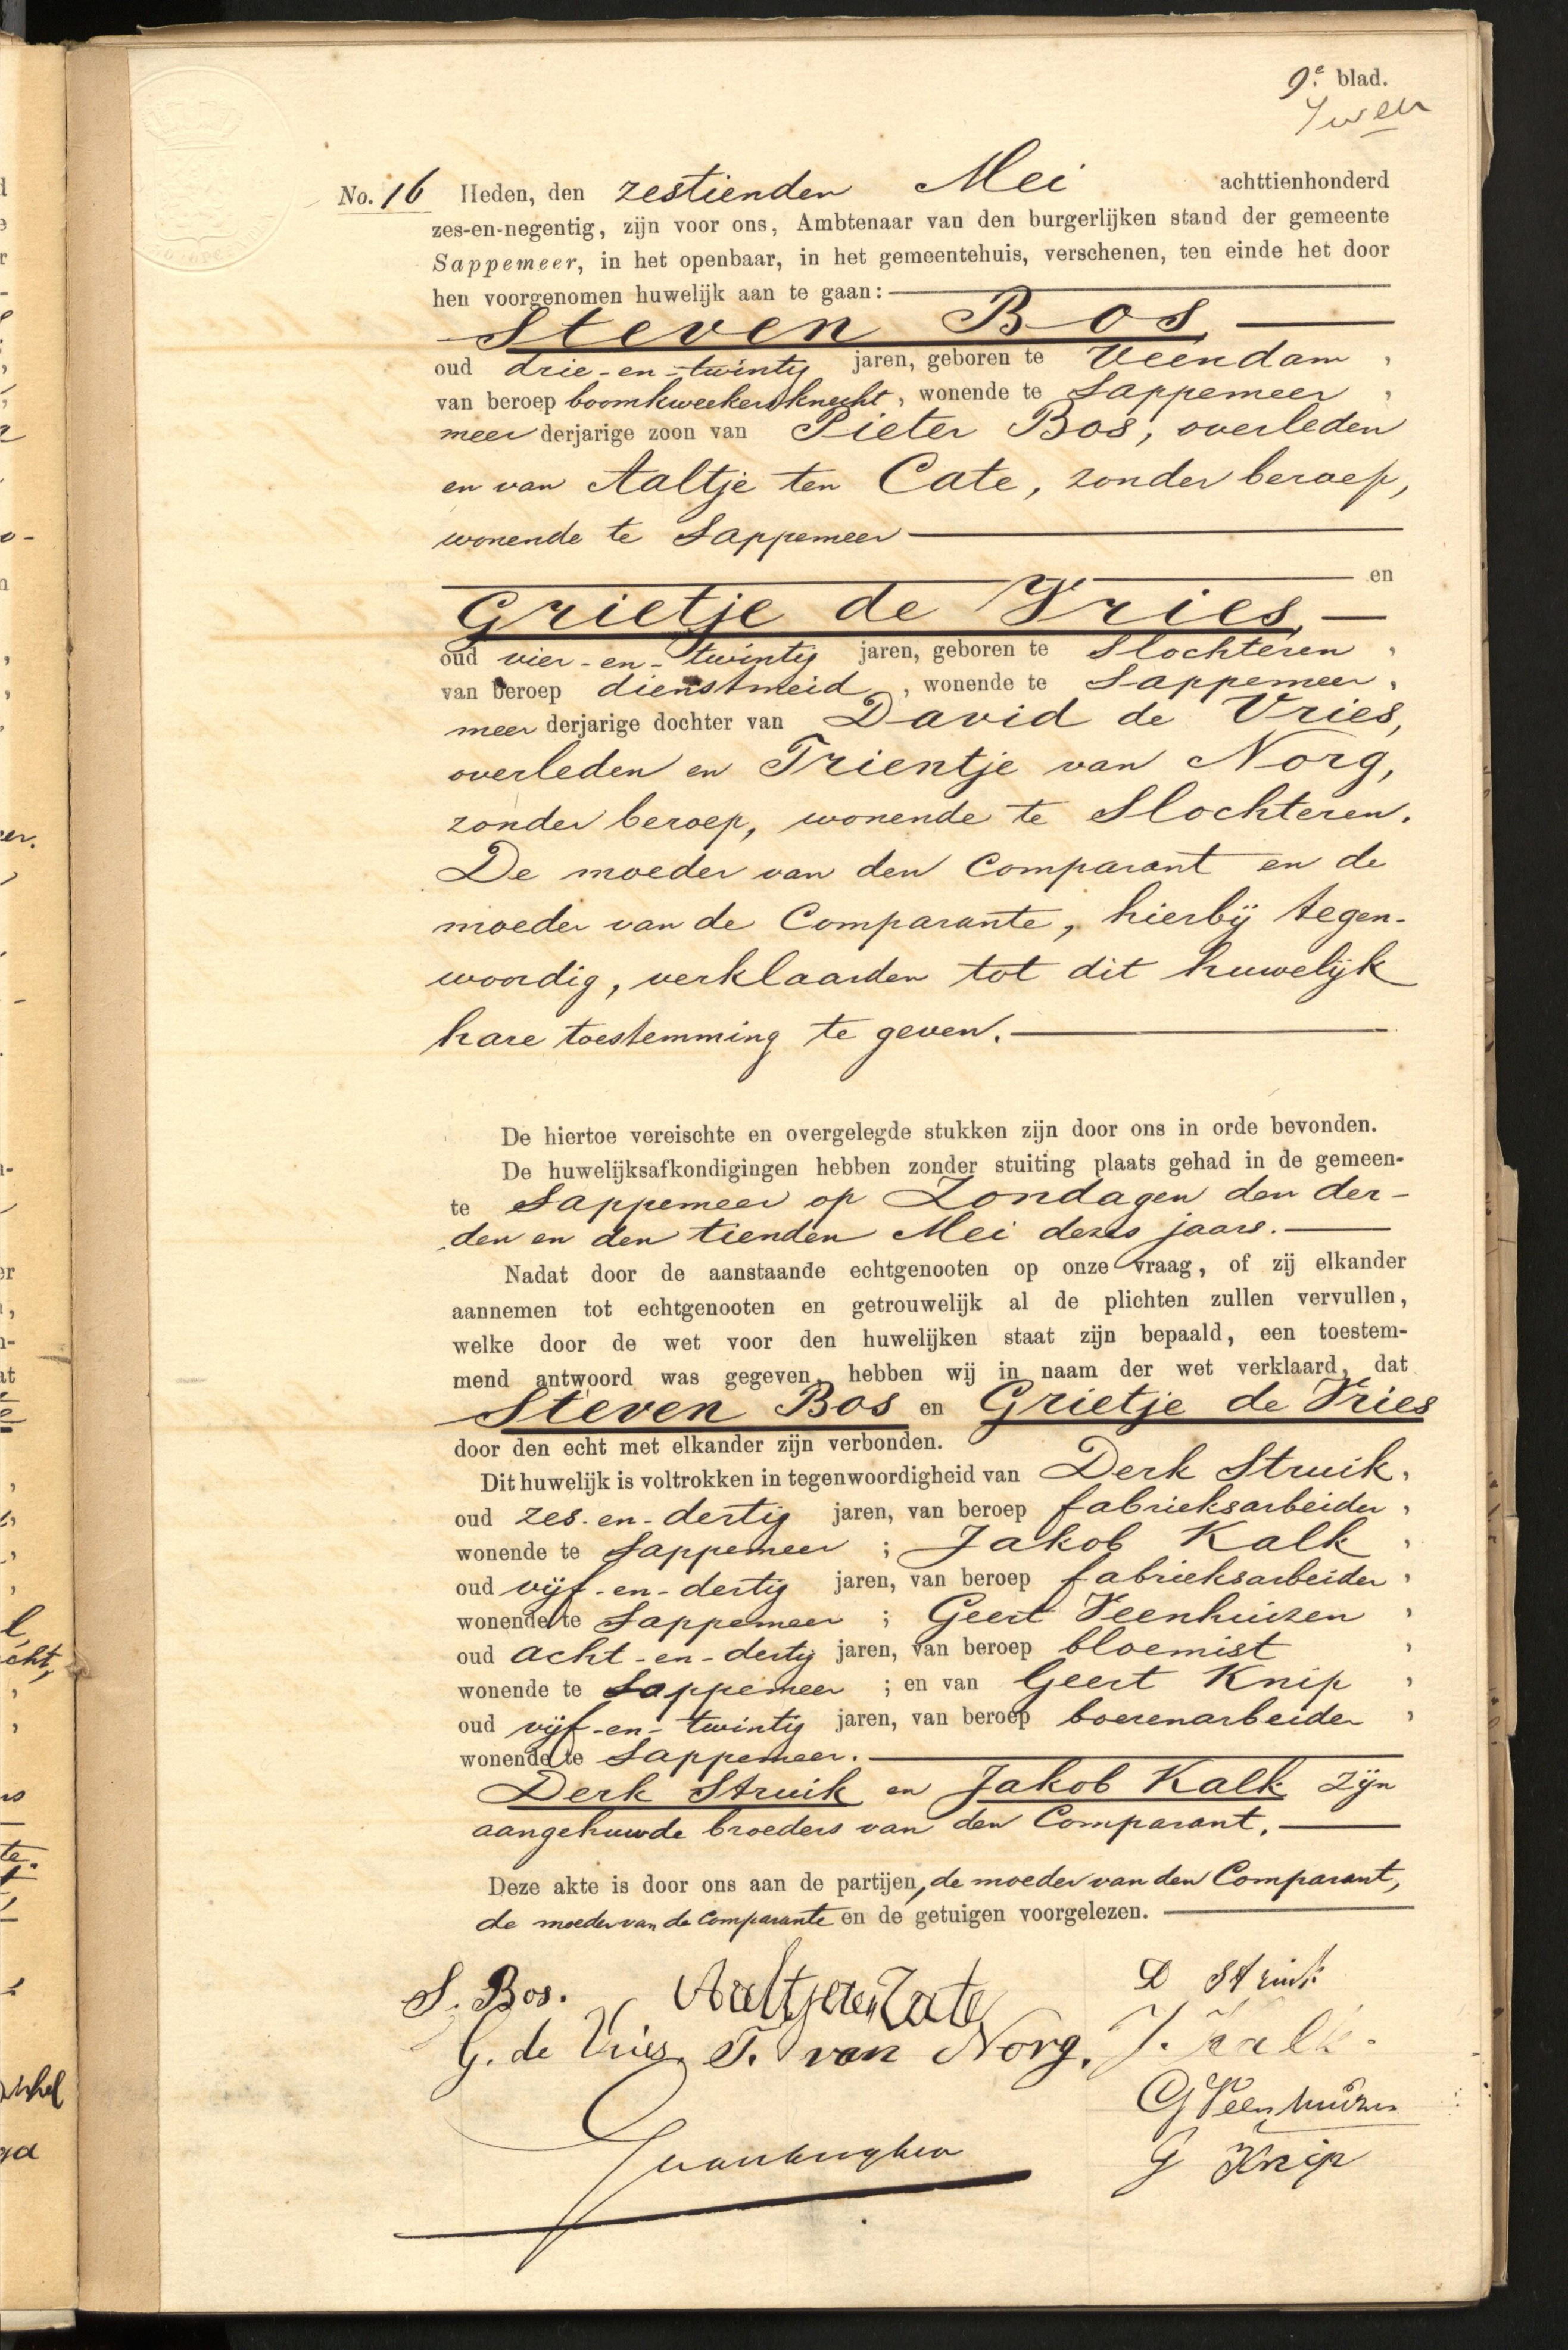 9e. blad.
No. 16 Heden, den zestienden Mei achttienhonderd
zes-en-negentig, zijn voor ons, Ambtenaar van den burgerlijken stand der gemeente
Sappemeer, in het openbaar, in het gemeentehuis, verschenen, ten einde het door
hen voorgenomen huwelijk aan te gaan:
Steven Bos,
oud drie-en-twintig jaren, geboren te Veendam,
van beroep boomkweekersknecht, wonende te Sappemeer,
meerderjarige zoon van Pieter Bos, overleden
en van Aaltje ten Cate, zonder beroep,
wonende te Sappemeer
en
Grietje de Vries,
oud vier-en-twintig jaren, geboren te Slochteren,
van beroep dienstmeid, wonende te Sappemeer,
meerderjarige dochter van David de Vries,
overleden en Trientje van Norg,
zonder beroep, wonende te Slochteren.
De moeder van den Comparant en de
moeder van de Comparante, hierbij tegen-
woordig, verklaarden tot dit huwelijk
hare toestemming te geven.
De hiertoe vereischte en overgelegde stukken zijn door ons in orde bevonden.
De huwelijksafkondigingen hebben zonder stuiting plaats gehad in de gemeen-
te Sappemeer op Zondagen den der-
den en den tienden Mei dezes jaars.
Nadat door de aanstaande echtgenooten op onze vraag, of zij elkander
aannemen tot echtgenooten en getrouwelijk al de plichten zullen vervullen,
welke door de wet voor den huwelijken staat zijn bepaald, een toestem-
mend antwoord was gegeven, hebben wij in naam der wet verklaard, dat
Steven Bos en Grietje de Vries
door den echt met elkander zijn verbonden.
Dit huwelijk is voltrokken in tegenwoordigheid van Derk Struik,
oud zes-en-dertig jaren, van beroep fabrieksarbeider,
wonende te Sappemeer; Jakob Kalk,
oud vijf-en-dertig jaren, van beroep fabrieksarbeider,
wonende te Sappemeer; Geert Veenhuizen,
oud acht-en-dertig jaren, van beroep bloemist,
wonende te Sappemeer; en van Geert Knip,
oud vijf-en-twintig jaren, van beroep boerenarbeider,
wonende te Sappemeer.
Derk Struik en Jakob Kalk zijn
aangehuwde broeders van den Comparant.
Deze akte is door ons aan de partijen, de moeder van den Comparant,
de moeder van de Comparante en de getuigen voorgelezen.
S. Bos. Aaltje ten Cate D Struik
G. de Vries. T. van Norg. J. Kalk.
G Veenhuizen
G Knip